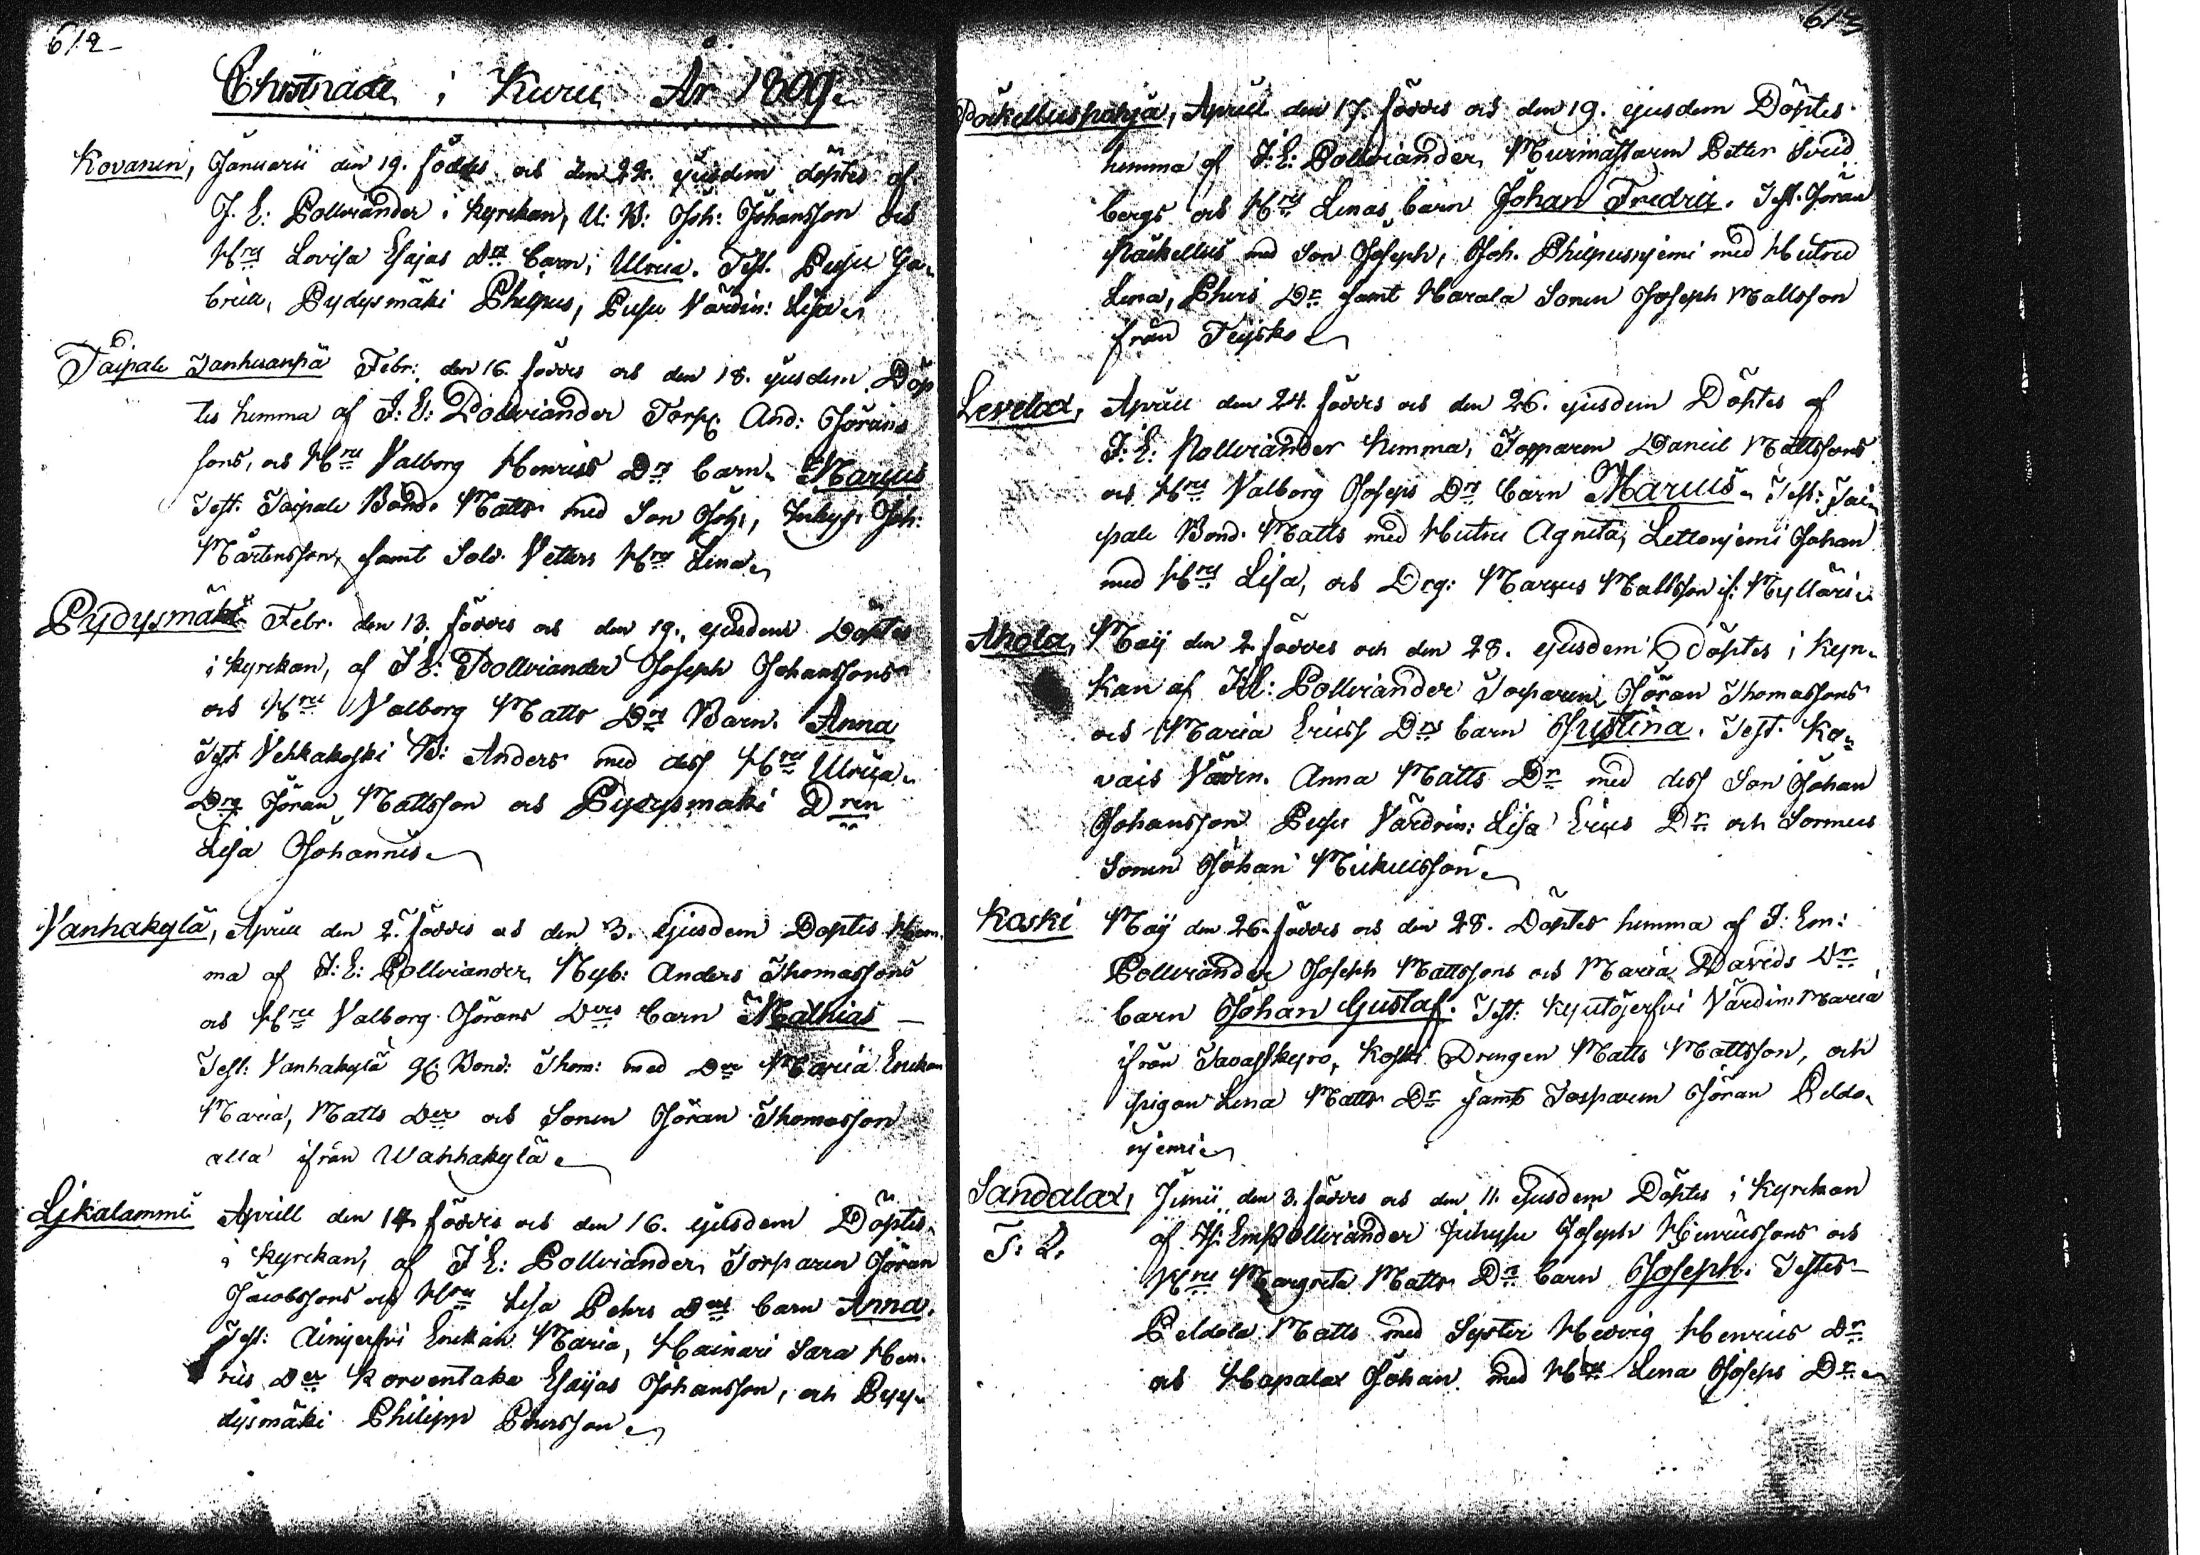 612
Christnade i Kuru År 1809
Kovanen, Januarii den 19. föddes och den 22. ejusdem döptes af
J. E: Pollviander i kyrckan, U: B: Joh: Johansson och
H:ru Lovisa Esajas D:rs barn, Ulrica. Test. Pusu Ga-
briel, Pydysmäki Philpus, Pusu Värdin: Lisa
Taipale Janhuanpä Febr: den 16. föddes och den 18. ejusdem Döp
tes hemma af J: E: Pollviander Torp: And: Jörans
sons, och H:ru Valborg Henrics D:rs barn Marcus
Test: Taipale Bond. Matts med Son Joh:, Joh:
Mårtensson, samt Sold. Vetters H:ru Lena
Pydysmäki Febr. den 13. föddes och den 19. ejusdem Döptes
i kyrckan, af J E: Pollviander Joseph Johanssons
och H:ru Valborg Matts D:rs Barn. Anna
Test Vehkakoski B: Anders med dess H:ru Ulrica
Drg Jöran Mattsson och Pydysmäki D:ren
Lisa Johannis
Vanhakylä, Aprill den 2. föddes och den 3. Ejusdem Döptes Hem-
ma af J: E: Pollviander, Nyb: Anders Thomassons
och H:ru Valborg Jörans D:ers barn Mathias
Test: Vanhakylä Bond: Thom: med D:er Maria Enckan
Maria, Matts D:er och Sonen Jöran Thomasson
alla ifrån Wanhakylä
Likalammi Aprill den 14 föddes och den 16. ejusdem Döptes
i kyrckan, af J E: Pollviander, Torparen Jöran
Jacobssons och H:ru Lisa Pehrs D:ers barn Anna.
Test: Ainjerfvi Enckan Maria, Hainari Sara Hen-
rics D:er Korventaka Esaijas Johansson, och Pyy-
dysmäki Philipp Pehrsson
613
Pockelluspohja, Aprill den 17. föddes och den 19. ejusdem Döptes
hemma af J: E: Pollviander, Murmästaren Petter Svid
bergs och H:rus Lenas barn Johan Fredric. Test. Jöran
Påckellus med Son Joseph, Joh. Philpusnjemi med Hustru
Lena, Phers D:r samt Harala Sonen Joseph Mattsson
från Teysko
Levelax, Aprill den 24. föddes och den 26. ejusdem Döptes af
J: E: Pollviander hemma, Torparen Daniel Mattssons
och H:ru Valborg Joseps D:rs barn Marcus. Test: Tai-
pale Bond. Matts med Hustru Agneta, Lettonjemi Johan
med H:ru Lisa, och Drg: Marcus Mattsson if: Mylläri
Ahola, Maij den 2. föddes och den 28. ejusdem Döptes i Kyr-
kan af J E: Pollviander Torparen Jöran Thomassons
och Maria Ericss D:rs barn Justina. Test. Ko-
vais Värdn. Anna Matts D:r med dess Son Johan
Johansson Pusu Värdin: Lisa Erics D:r och Sormus
Sonen Johan Mickelsson
Koski Maij den 26. föddes och den 28. Döptes hemma af J: Em:
Pollviander Joseph Mattssons och Maria Davids D:rs
barn Johan Gustaf. Test: Kyntöjerfvi Värdin: Maria
ifrån Tavastkyro, Koski Drengen Matts Mattsson, och
pigan Lena Matts D:r samt Torparen Jöran Peldo-
njemi
Sandalax, Junii den 3. föddes och den 11. Ejusdem Döptes i Kyrckan
af J: Em Pollviander Joseph Henricssons och
H:ru Margreta Matts D:rs barn Joseph. Testes
Peldola Matts med Syster Hedvig Henrics D:r
och Hapalax Johan med H:ru Lena Joseps D:r